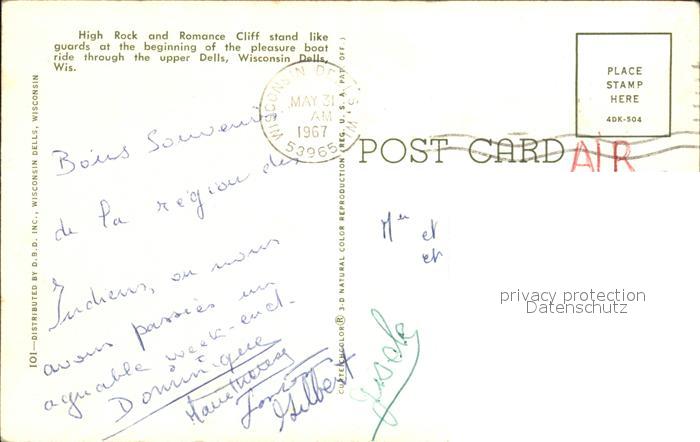 High Rock and Romance Cliff stand like
guards at the beginning of the pleasure boat
ride through the upper Dells, Wisconsin Dells,
Wis.
101—DISTRIBUTED BY D.B.D. INC., WISCONSIN DELLS, WISCONSIN
WISCONSIN DELLS WI
MAY 31
AM
1967
53965
CURTEICHCOLOR® 3-D NATURAL COLOR REPRODUCTION (REG. U.S.A. PAT. OFF.)
POST CARD
PLACE
STAMP
HERE
4DK-504
AIR
Bons Souvenirs
de la région des
Indiens, où nous
avons passés un
agréable week-end.
Dominique
Gilbert
et
et
privacy protection
Datenschutz